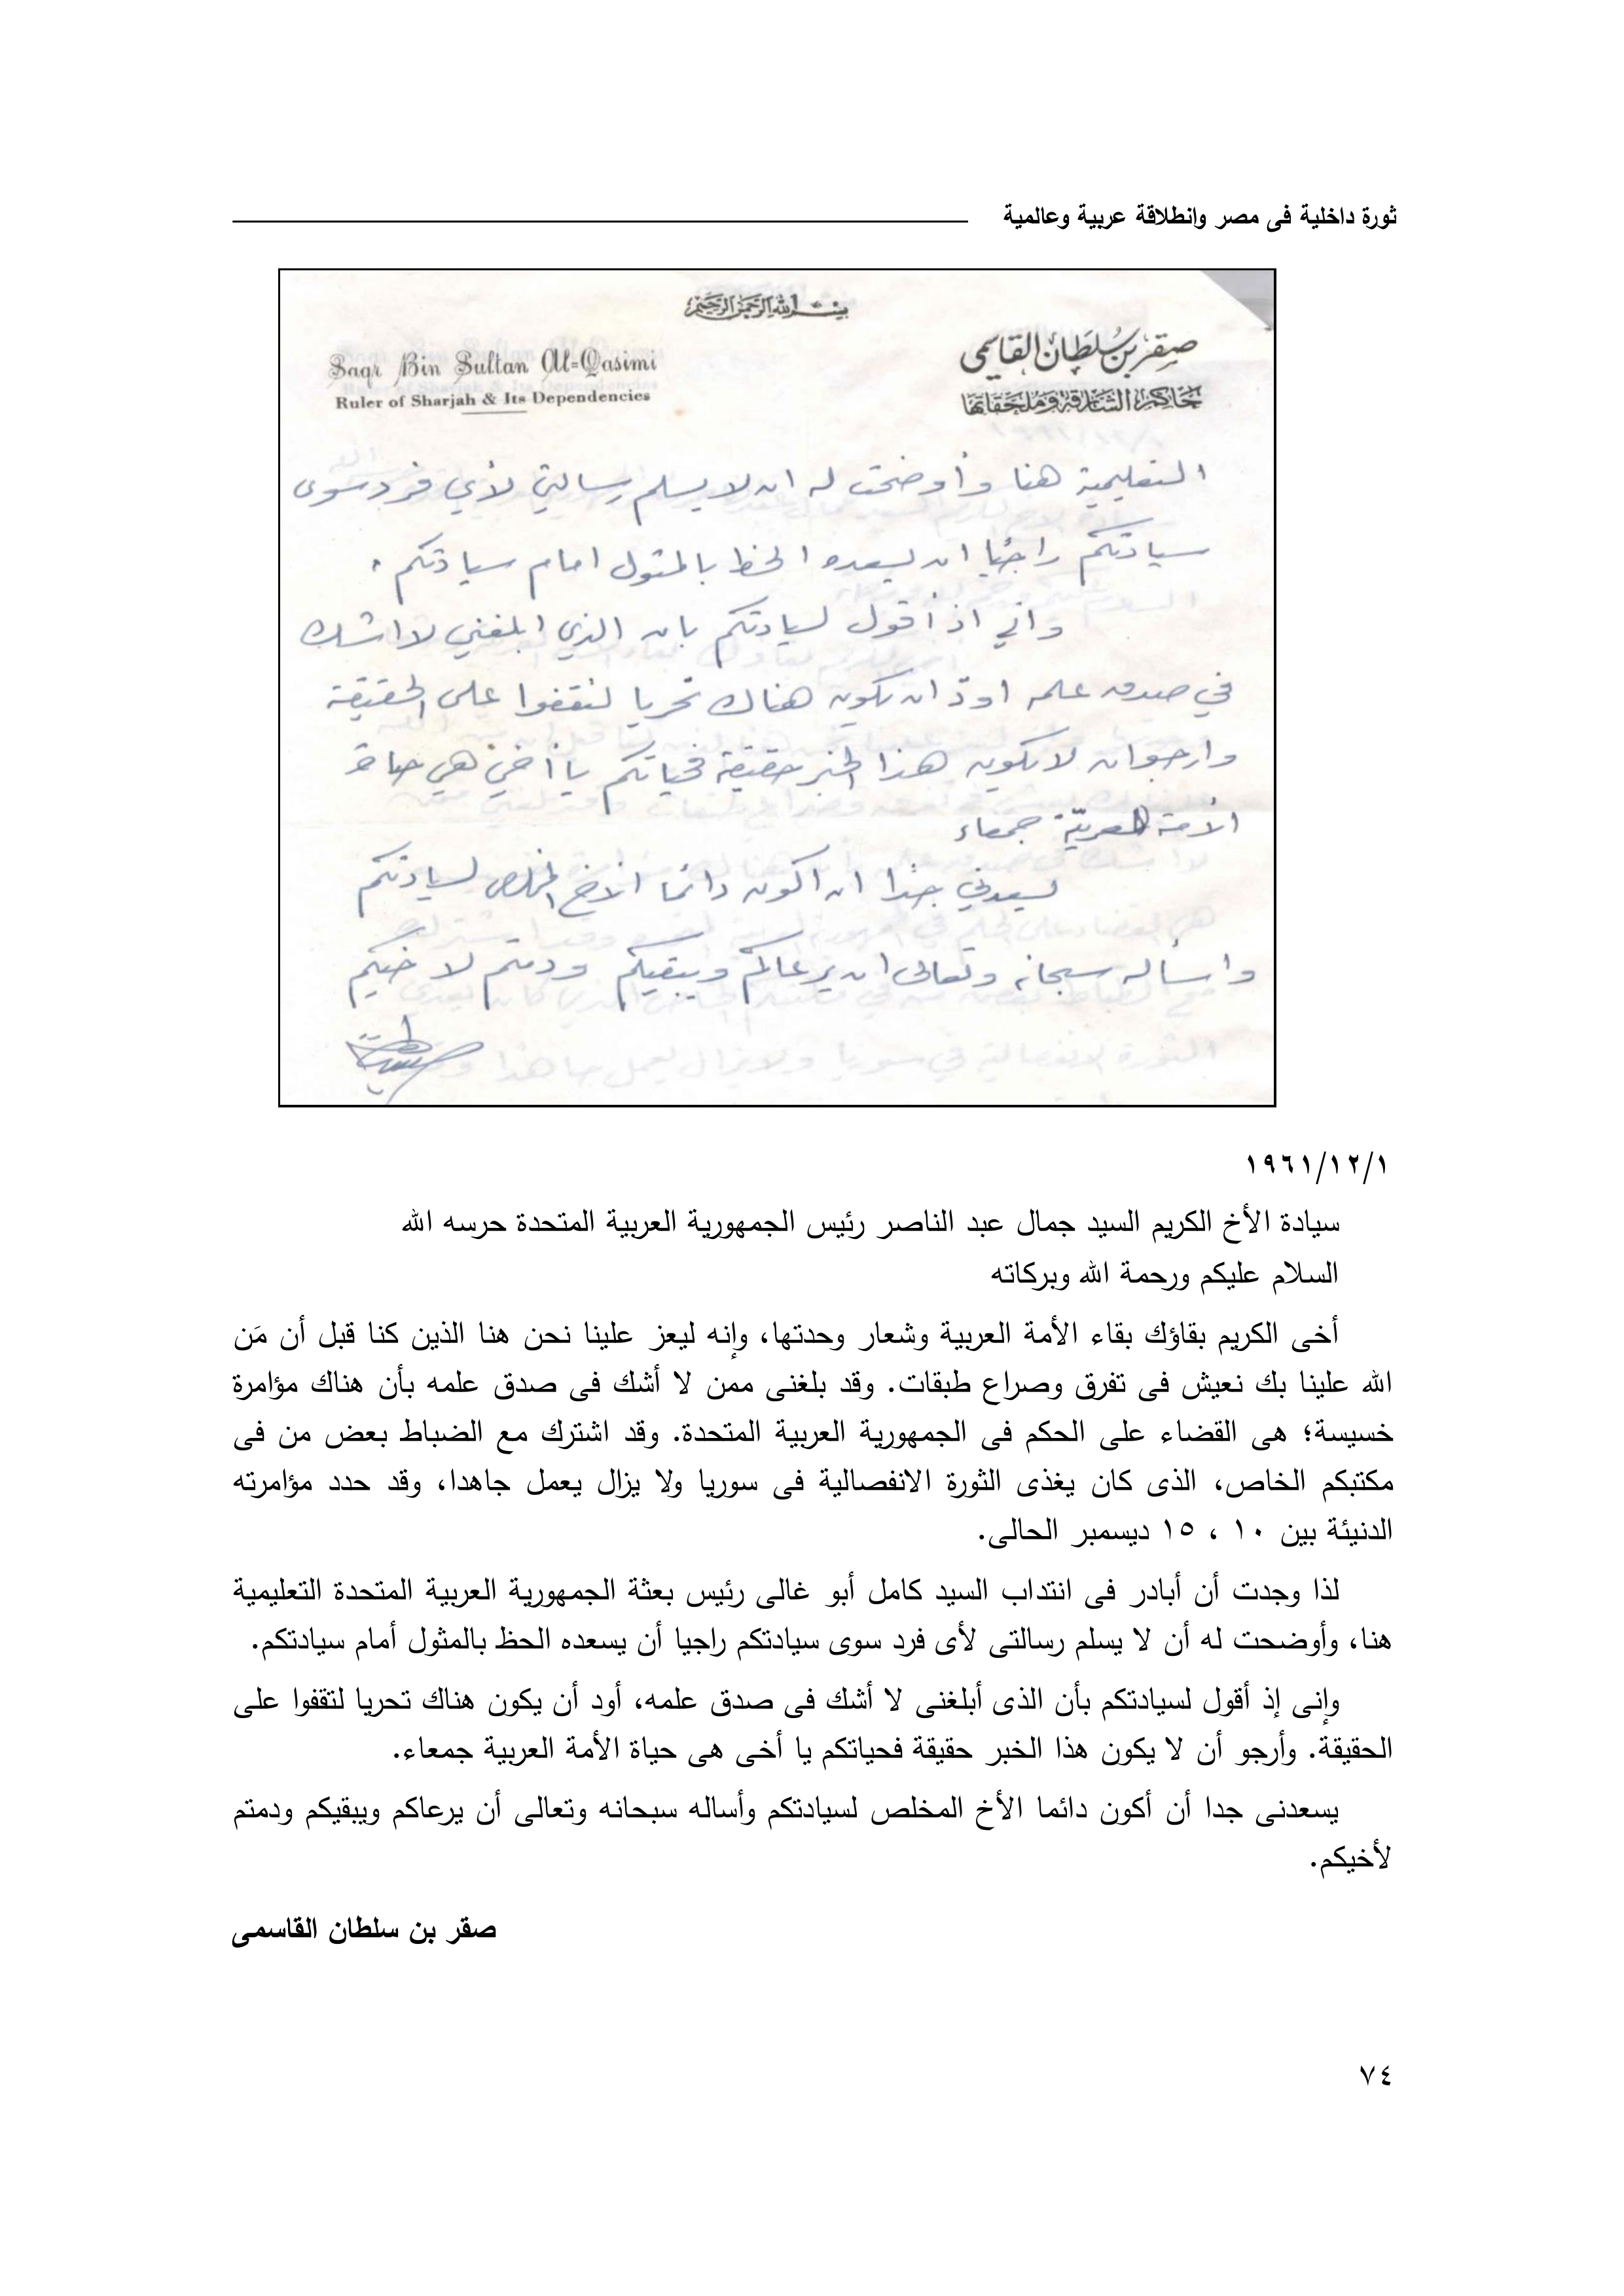 ثورة داخلية فى مصر وانطلاقة عربية وعالمية
بسم الله الرحمن الرحيم
صقر بن سلطان القاسمي
Saqr Bin Sultan Al=Qasimi
حاكم الشارقة وملحقاتها
Ruler of Sharjah & Its Dependencies
التعليمية هنا وأوضحت له ان لا يسلم رسالتي لأي فرد سوى
سيادتكم راجيًا ان يسعده الحظ بالمثول امام سيادتكم .
واني اذ أقول لسيادتكم بان الذي ابلغني لا اشك
في صدق علمه اودّ ان يكون هناك تحريا لتقفوا على الحقيقة
وارجوان لا يكون هذا الخبر حقيقة فحياتكم يا أخي هي حياة
الأمة العربيّة جمعاء
يسعدني جدًا ان اكون دائما الأخ المخلص لسيادتكم
وأسأله سبحانه وتعالى ان يرعاكم ويبقيكم ودمتم لاخيكم
١٩٦١/١٢/١
سيادة الأخ الكريم السيد جمال عبد الناصر رئيس الجمهورية العربية المتحدة حرسه الله
السلام عليكم ورحمة الله وبركاته
أخى الكريم بقاؤك بقاء الأمة العربية وشعار وحدتها، وإنه ليعز علينا نحن هنا الذين كنا قبل أن مَن
الله علينا بك نعيش فى تفرق وصراع طبقات. وقد بلغنى ممن لا أشك فى صدق علمه بأن هناك مؤامرة
خسيسة؛ هى القضاء على الحكم فى الجمهورية العربية المتحدة. وقد اشترك مع الضباط بعض من فى
مكتبكم الخاص، الذى كان يغذى الثورة الانفصالية فى سوريا ولا يزال يعمل جاهدا، وقد حدد مؤامرته
الدنيئة بين ١٠ ، ١٥ ديسمبر الحالى.
لذا وجدت أن أبادر فى انتداب السيد كامل أبو غالى رئيس بعثة الجمهورية العربية المتحدة التعليمية
هنا، وأوضحت له أن لا يسلم رسالتى لأى فرد سوى سيادتكم راجيا أن يسعده الحظ بالمثول أمام سيادتكم.
وإنى إذ أقول لسيادتكم بأن الذى أبلغنى لا أشك فى صدق علمه، أود أن يكون هناك تحريا لتقفوا على
الحقيقة. وأرجو أن لا يكون هذا الخبر حقيقة فحياتكم يا أخى هى حياة الأمة العربية جمعاء.
يسعدنى جدا أن أكون دائما الأخ المخلص لسيادتكم وأساله سبحانه وتعالى أن يرعاكم ويبقيكم ودمتم
لأخيكم.
صقر بن سلطان القاسمى
٧٤